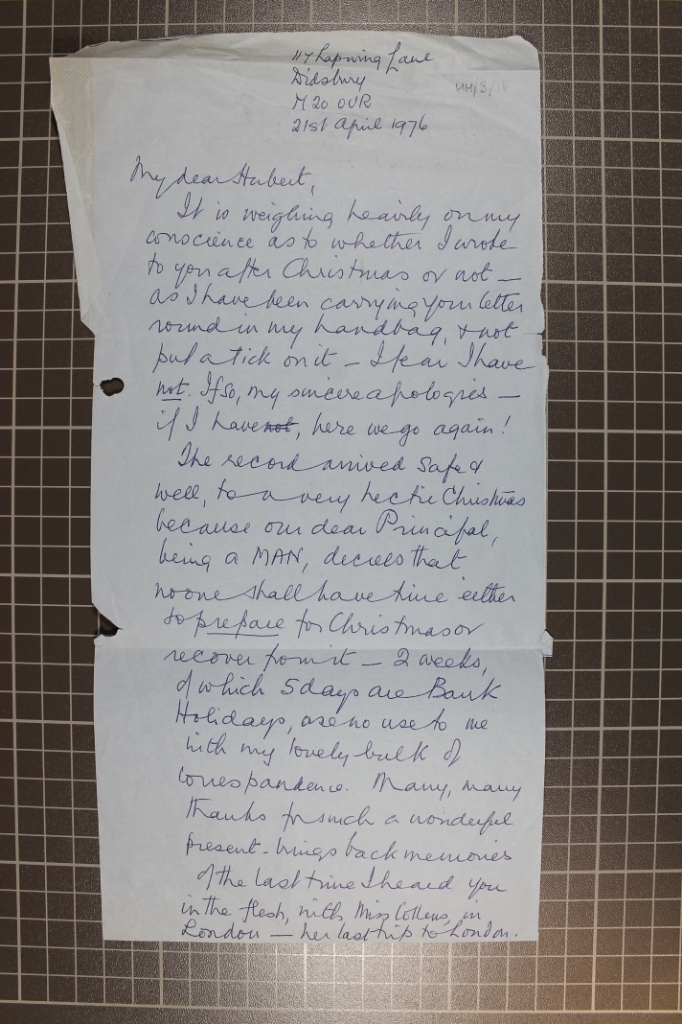 117 Lapwing Lane
Didsbury
M20 0UR
HH/3/14
21st April 1976
My dear Hubert,
It is weighing heavily on my
conscience as to whether I wrote
to you after Christmas or not –
as I have been carrying your letter
round in my handbag, & not
put a tick on it – I fear I have
not. If so, my sincere apologies –
if I have not, here we go again!
The record arrived safe &
well, to a very hectic Christmas
because our dear Principal,
being a MAN, decrees that
no one shall have time either
to prepare for Christmas or
recover from it – 2 weeks,
of which 5 days are Bank
Holidays, are no use to me
with my lovely bulk of
correspondence. Many, many
thanks for such a wonderful
present – brings back memories
of the last time I heard you
in the flesh, with Miss Collens, in
London – her last trip to London.